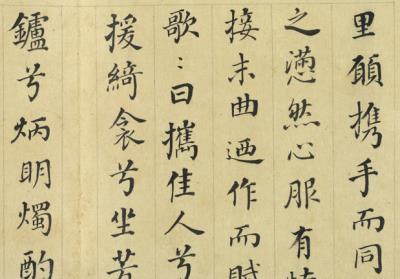 里願携手而同
之懣然心服有
接末曲迺作而賦
歌〻曰攜佳人兮
援綺衾兮坐芳
鑪兮炳明燭酌